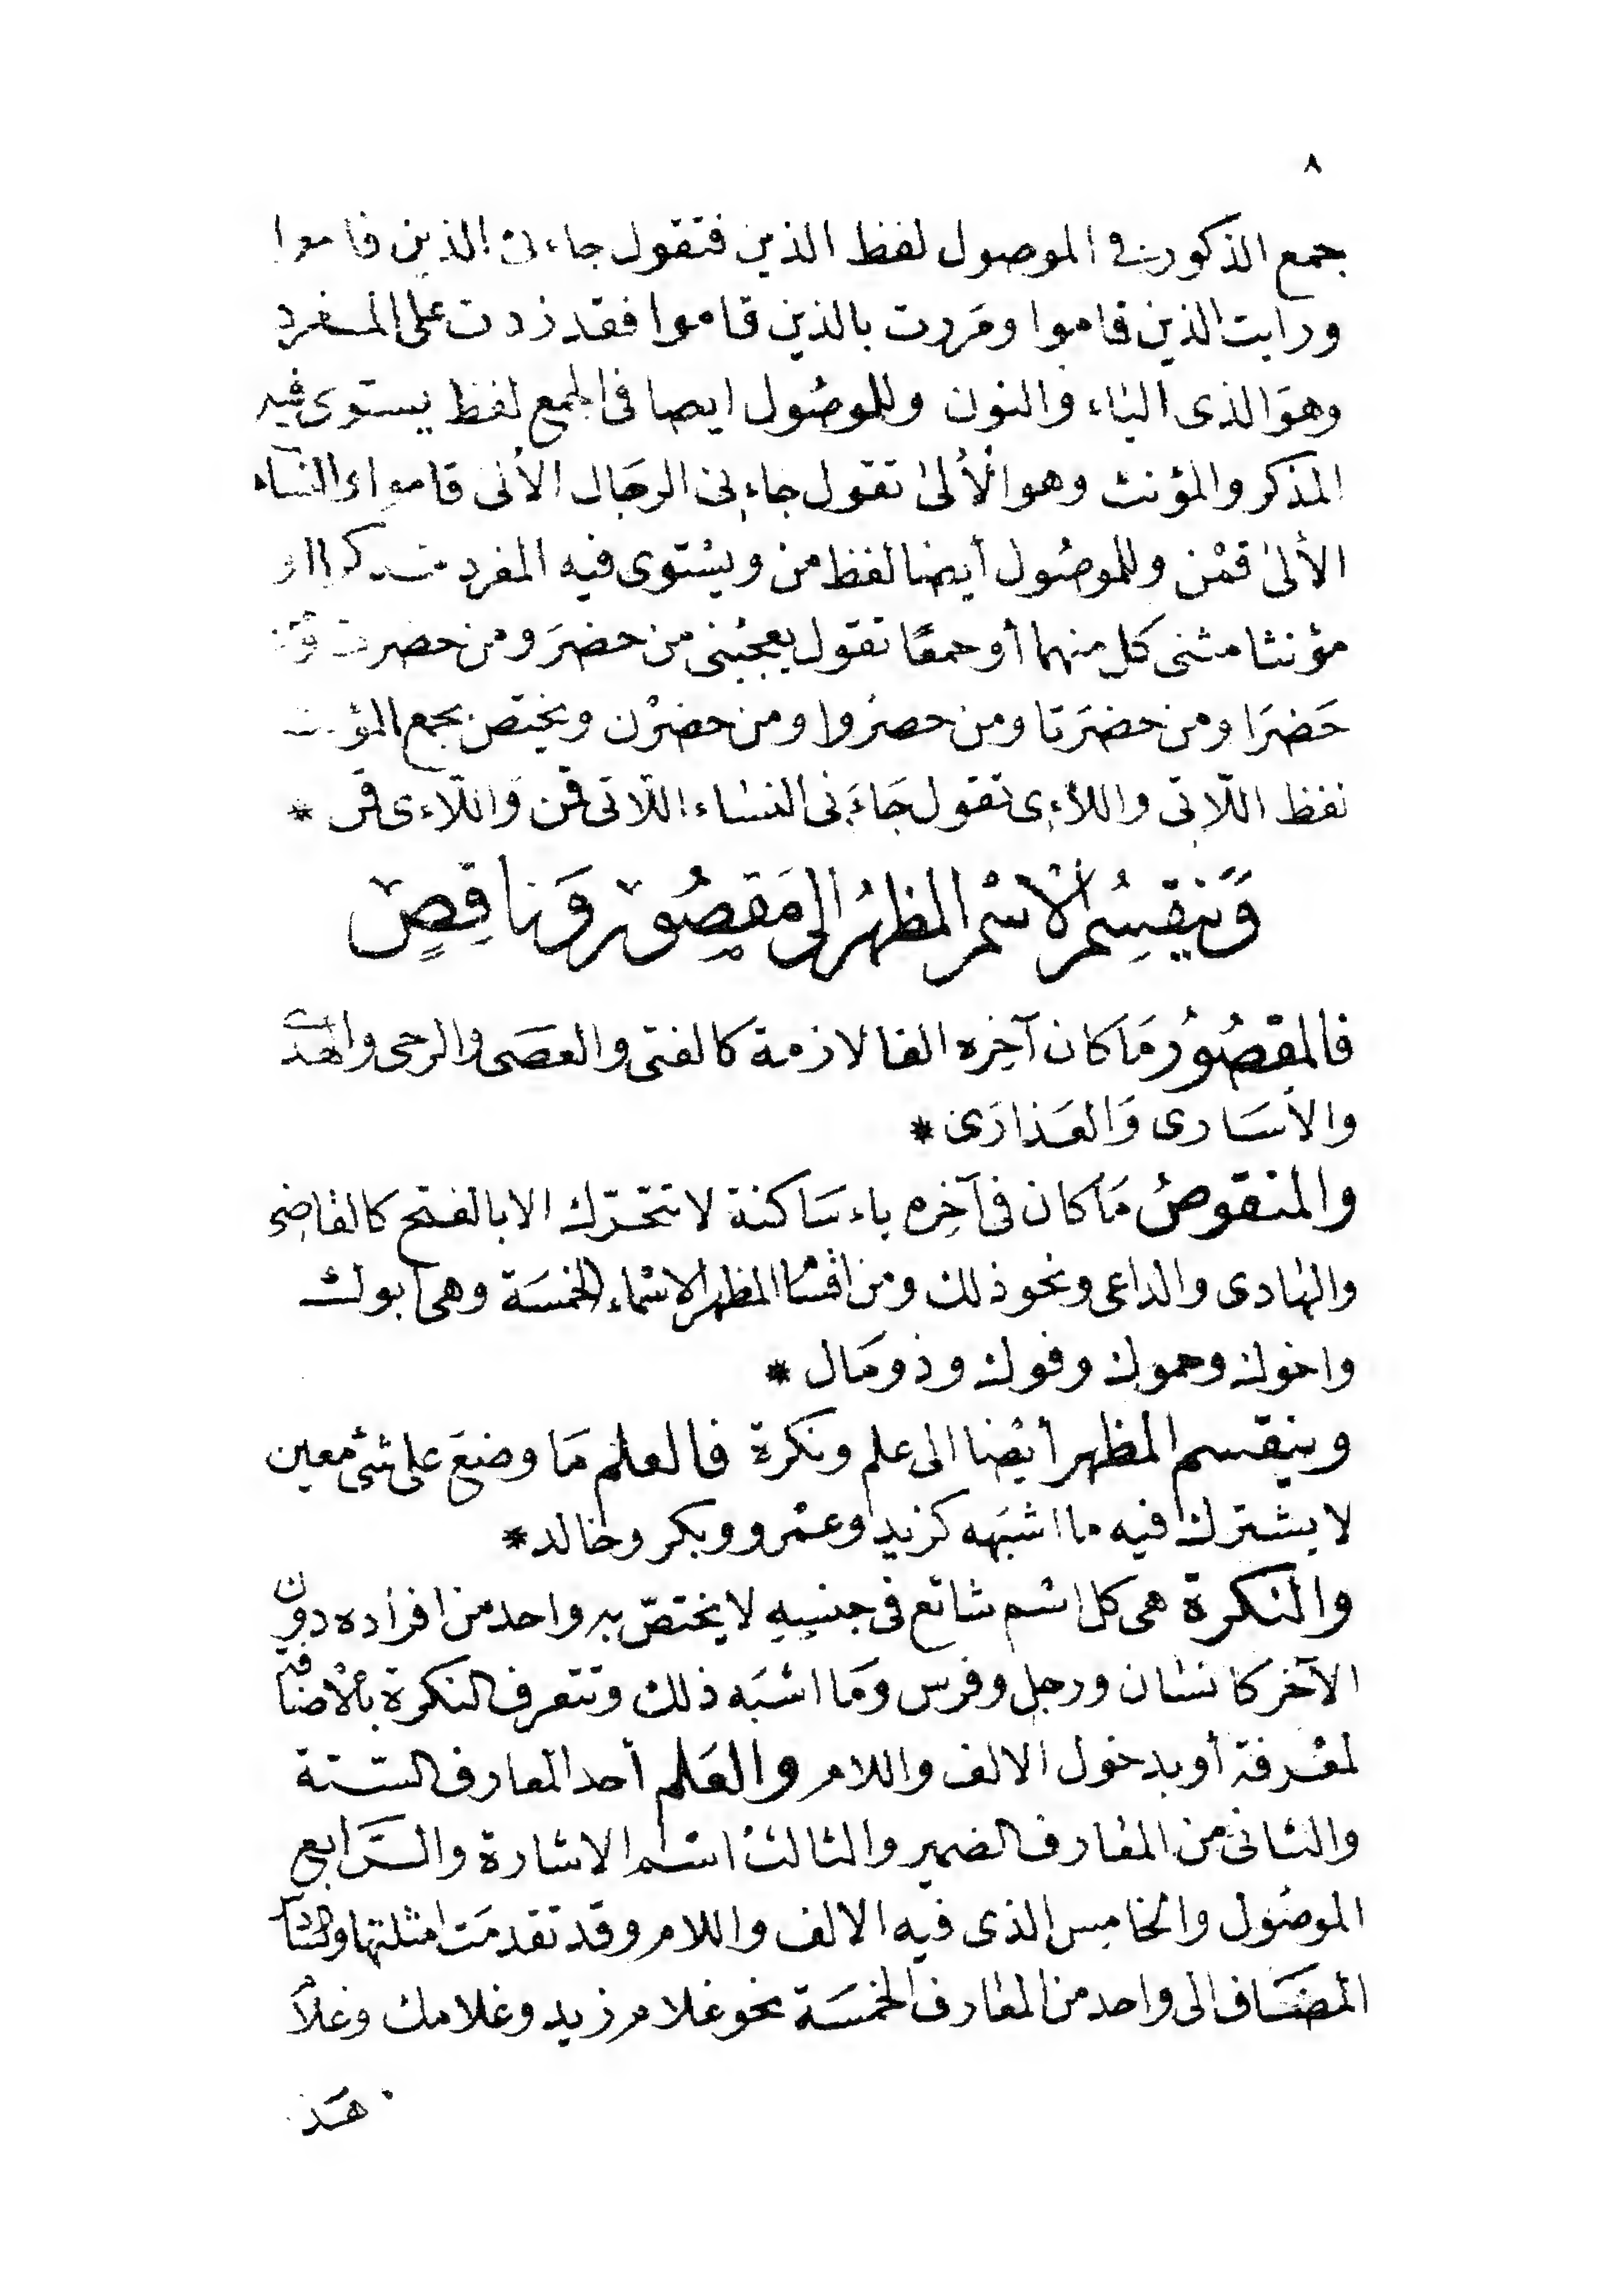 ٨
جمع الذكور في الموصول لفظ الذين فتقول جاءنى الذين قاموا
ورايت الذين قاموا ومَررت بالذين قاموا فقد زدت على المفرد
وهوَ الذى الياء والنون وللموصُول ايضا فى الجمع لفظ يستوى فيه
المذكر والمؤنث وهو الأُلىٰ تقول جاءنى الرجَال الألىٰ قاموا والنساء
الألىٰ قمْن وللموصُول أيضا لفظ من ويسْتوى فيه المفرد مذكرا او
مؤنثا مثنى كل منهما أو جمعًا تقول يعجبْنى من حضرَ ومن حضرت
حَضرَا ومن حضرَتا ومن حضرُوا ومن حضرْن ويختص بجمع المؤنث
لفظ اللّاتى واللّاءِى تقول جَاءَنى النسَاء اللّاتى قمن وَاللّاءى قمن *
وَيَنقسِمُ الْاسْم المظهرُ الى مَقصُورٍ وَناقِصٍ
فالمقصُورُ مَا كان آخِره الفا لازمة كالفتى والعصَى والرحى والهدى
والأسَارى وَالعَذارَى *
والمنقوصُ مَا كان فى آخِره ياء سَاكنة لا تتحَرّك الا بالفتح كالقاضِى
والهَادى والداعى ونحو ذلك ومن اقسَام المظهر الاسْماء الخمسَة وهى أبوك
واخوك وحموك وفوك وذو مَال *
وينقسم المظهر أيْضا الى علم ونكرة فالعلم مَا وضعَ على شئ معين
لا يشترك فيه ما اشبَهه كزيد وعمْرو وبكر وخالد *
والنكرة هى كل اسْم شائع فى جنسِهِ لا يختصّ به واحد من افرَاده دون
الآخر كانسَان ورجل وفرس وَمَا اشبَه ذلك وتتعرف النكرة بالْاضَافة
لمعْرفة أو بدخول الالف واللام والعَلم أحد المعَارف الستة
والثانى من المعَارف الضمير والثالث اسْم الاشارة والرَّابع
الموصُول والخامِس الذى فيه الالف واللام وقد تقدمَت امثلتها والسَّادس
المضَاف الى واحد من المعَارف الخمسَة نحو غلام زيد وغلامك وغلام
هَذا